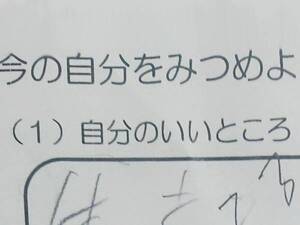 今の自分をみつめよ
（1）自分のいいところ